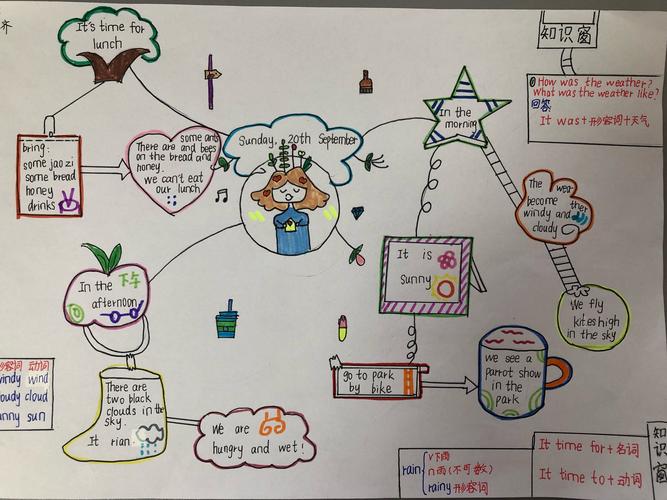 齐
It's time for
lunch
bring:
some jaozi
some bread
honey
drinks
some ants
There are and bees
on the bread and
honey.
we can't eat
our lunch
Sunday, 20th September
In the
morning
知识窗
How was the weather?
What was the weather like?
回答
It was+形容词+天气
The wea-
ther
become
windy and
cloudy
We fly
kites high
in the sky
It is
Sunny
go to park
by bike
we see a
parrot show
in the
park
In the 下午
afternoon
There are
two black
clouds in the
sky.
It rian
We are
hungry and wet!
形容词 动词
windy wind
cloudy cloud
sunny sun
rain
v下雨
n雨(不可数)
rainy 形容词
It time for+名词
It time to+动词
知识窗